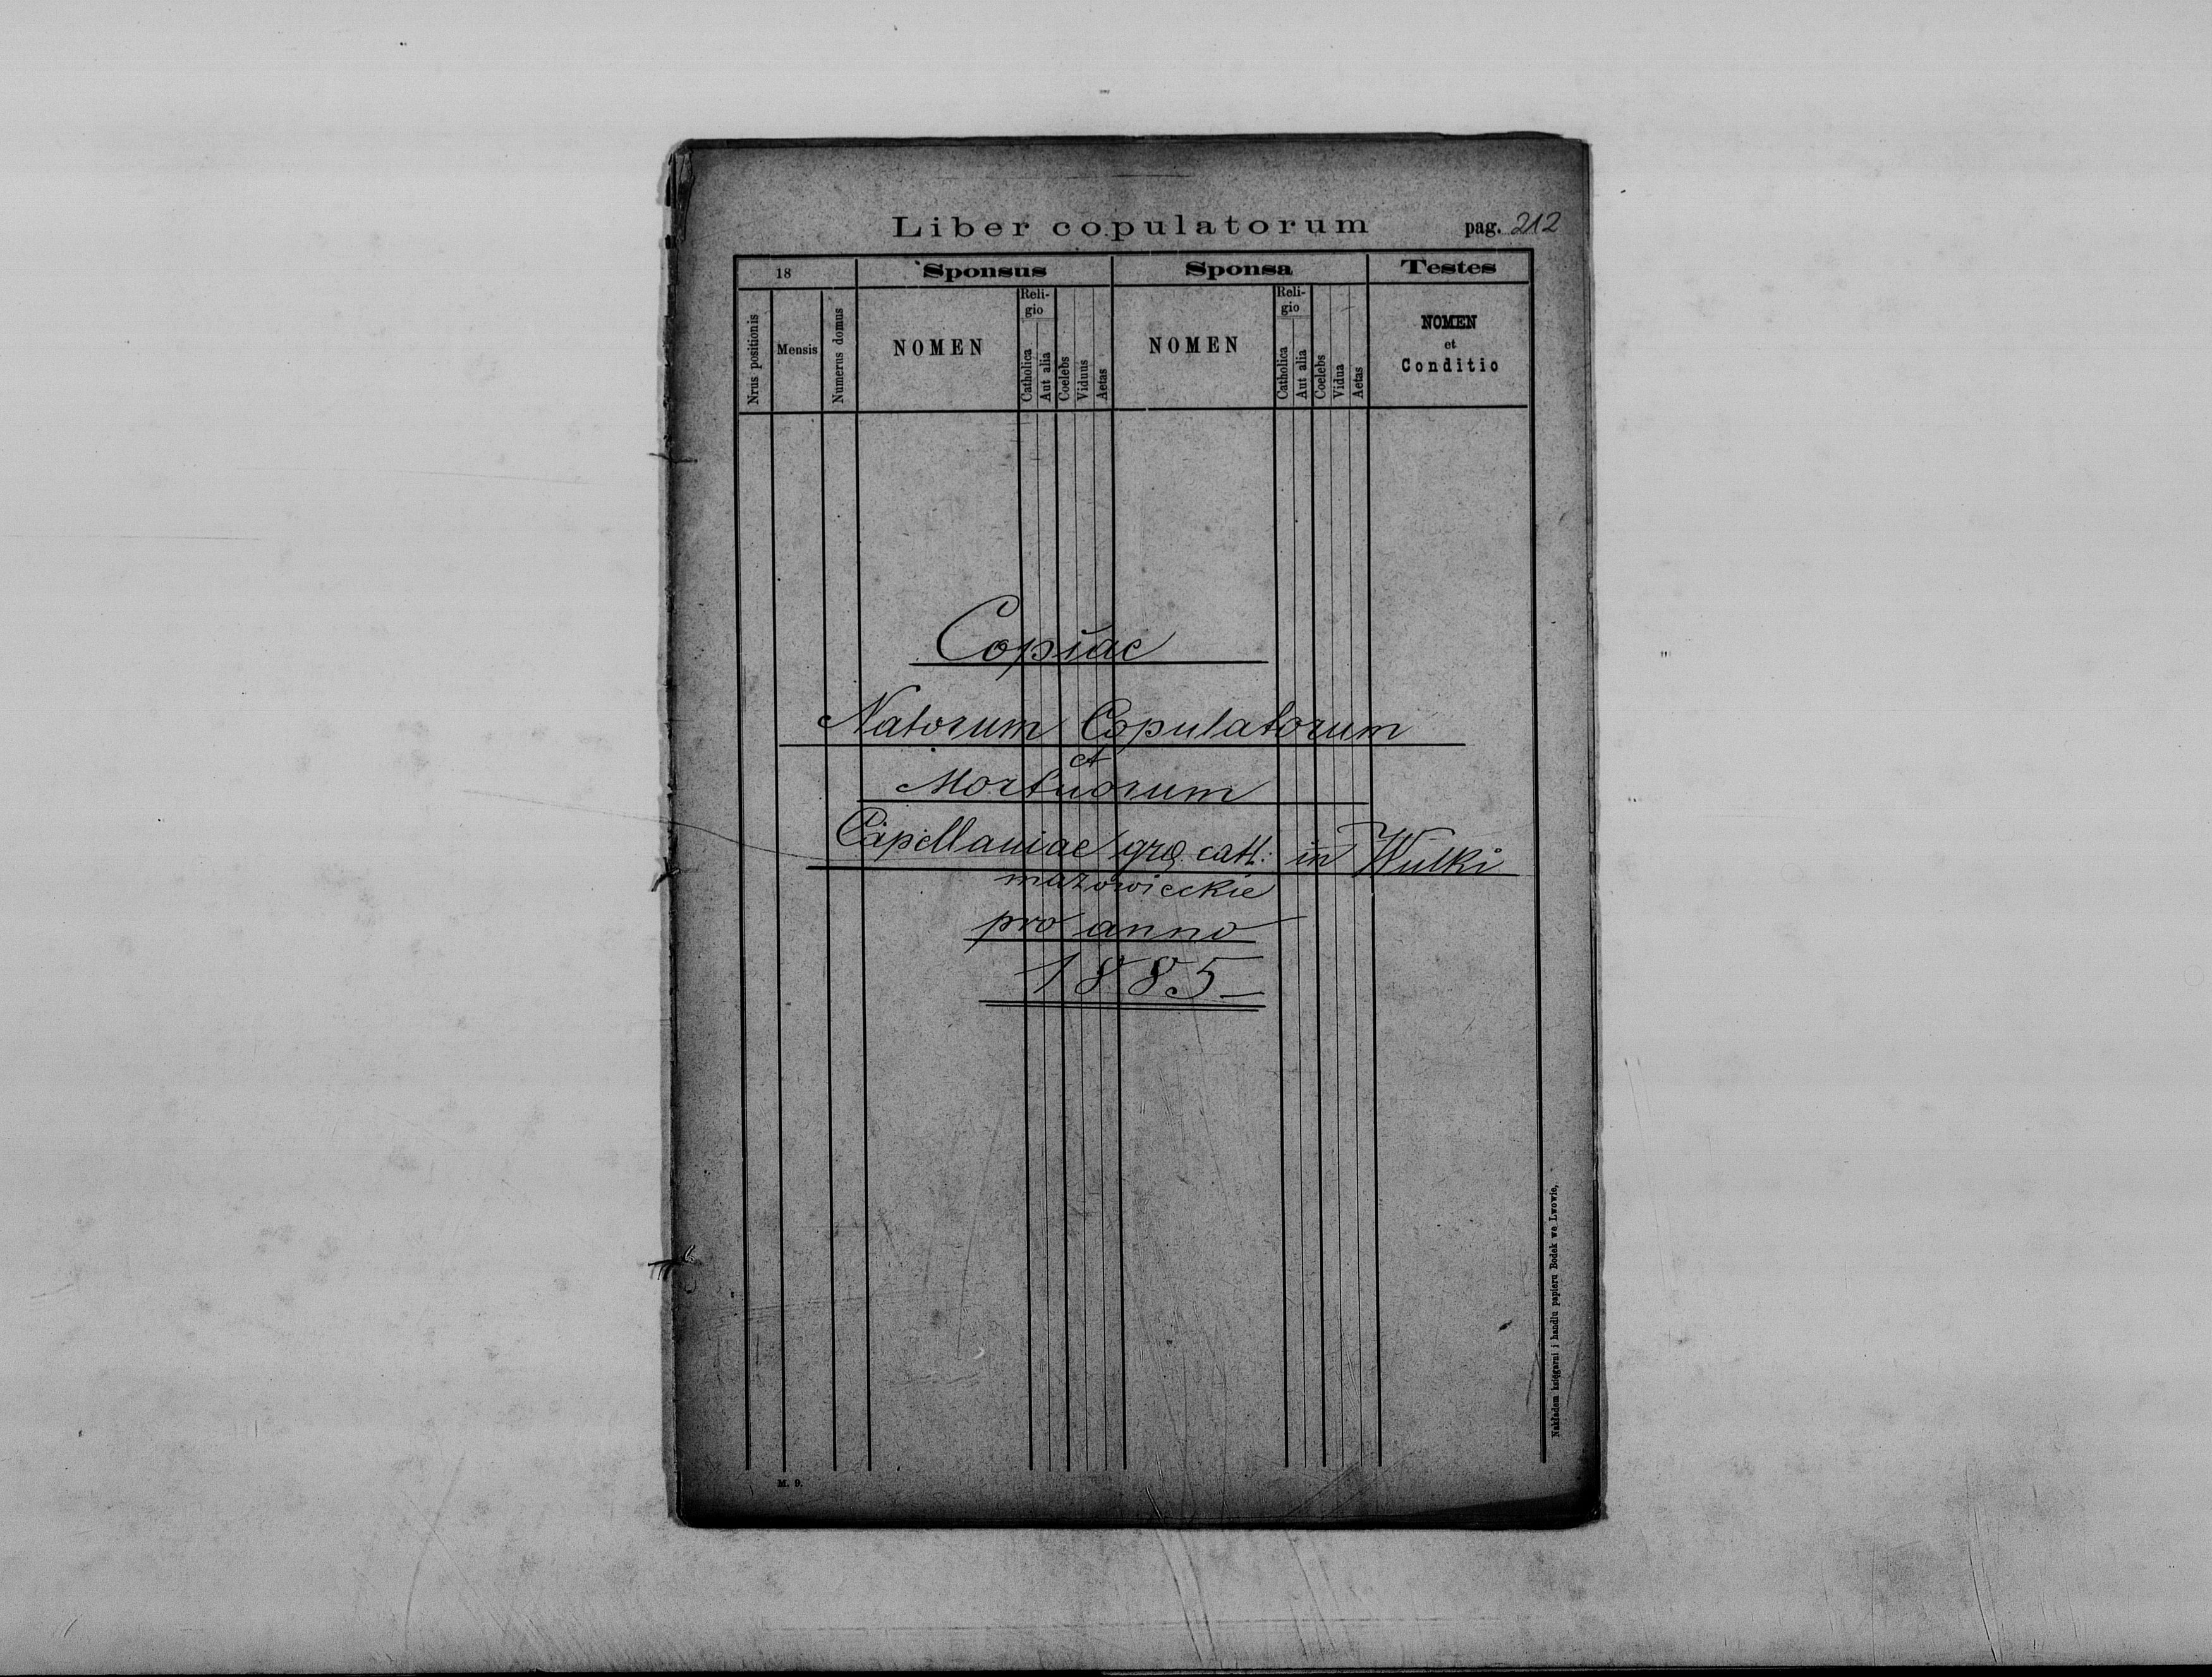 Liber copulatorum pag. 212
18 Sponsus Sponsa Testes
Nrus positionis Mensis Numerus domus NOMEN Religio Catholica Aut alia Coelebs Viduus Aetas NOMEN Religio Catholica Aut alia Coelebs Vidua Aetas NOMEN et Conditio
Copiae
Natorum Copulatorum
et
Mortuorum
Capellaniae grę cath: in Wulki
mazowieckie
pro anno
1885
Nakładem księgarni i handlu papieru Bodek we Lwowie,
M. 9.